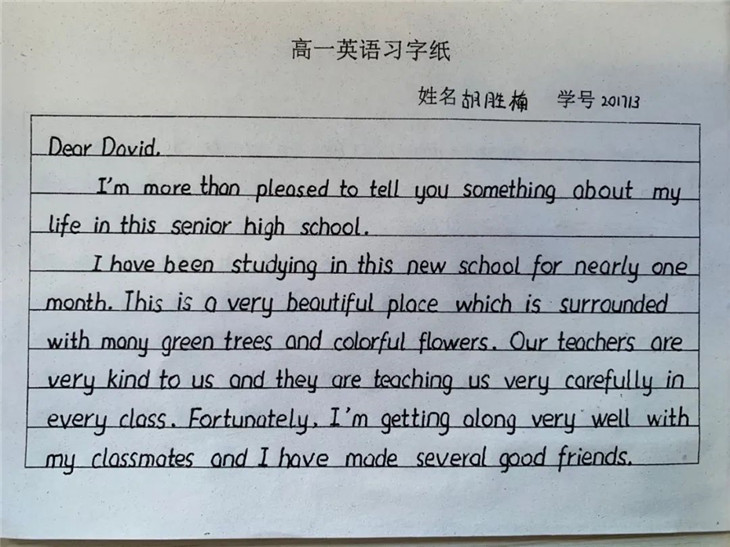 高一英语习字纸
姓名 胡胜楠 学号 201713
Dear David,
I'm more than pleased to tell you something about my
life in this senior high school.
I have been studying in this new school for nearly one
month. This is a very beautiful place which is surrounded
with many green trees and colorful flowers. Our teachers are
very kind to us and they are teaching us very carefully in
every class. Fortunately, I'm getting along very well with
my classmates and I have made several good friends.